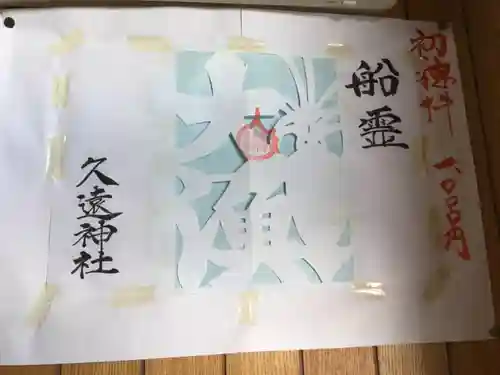 初穂料 一〇〇〇円
船霊
大漁
久遠神社